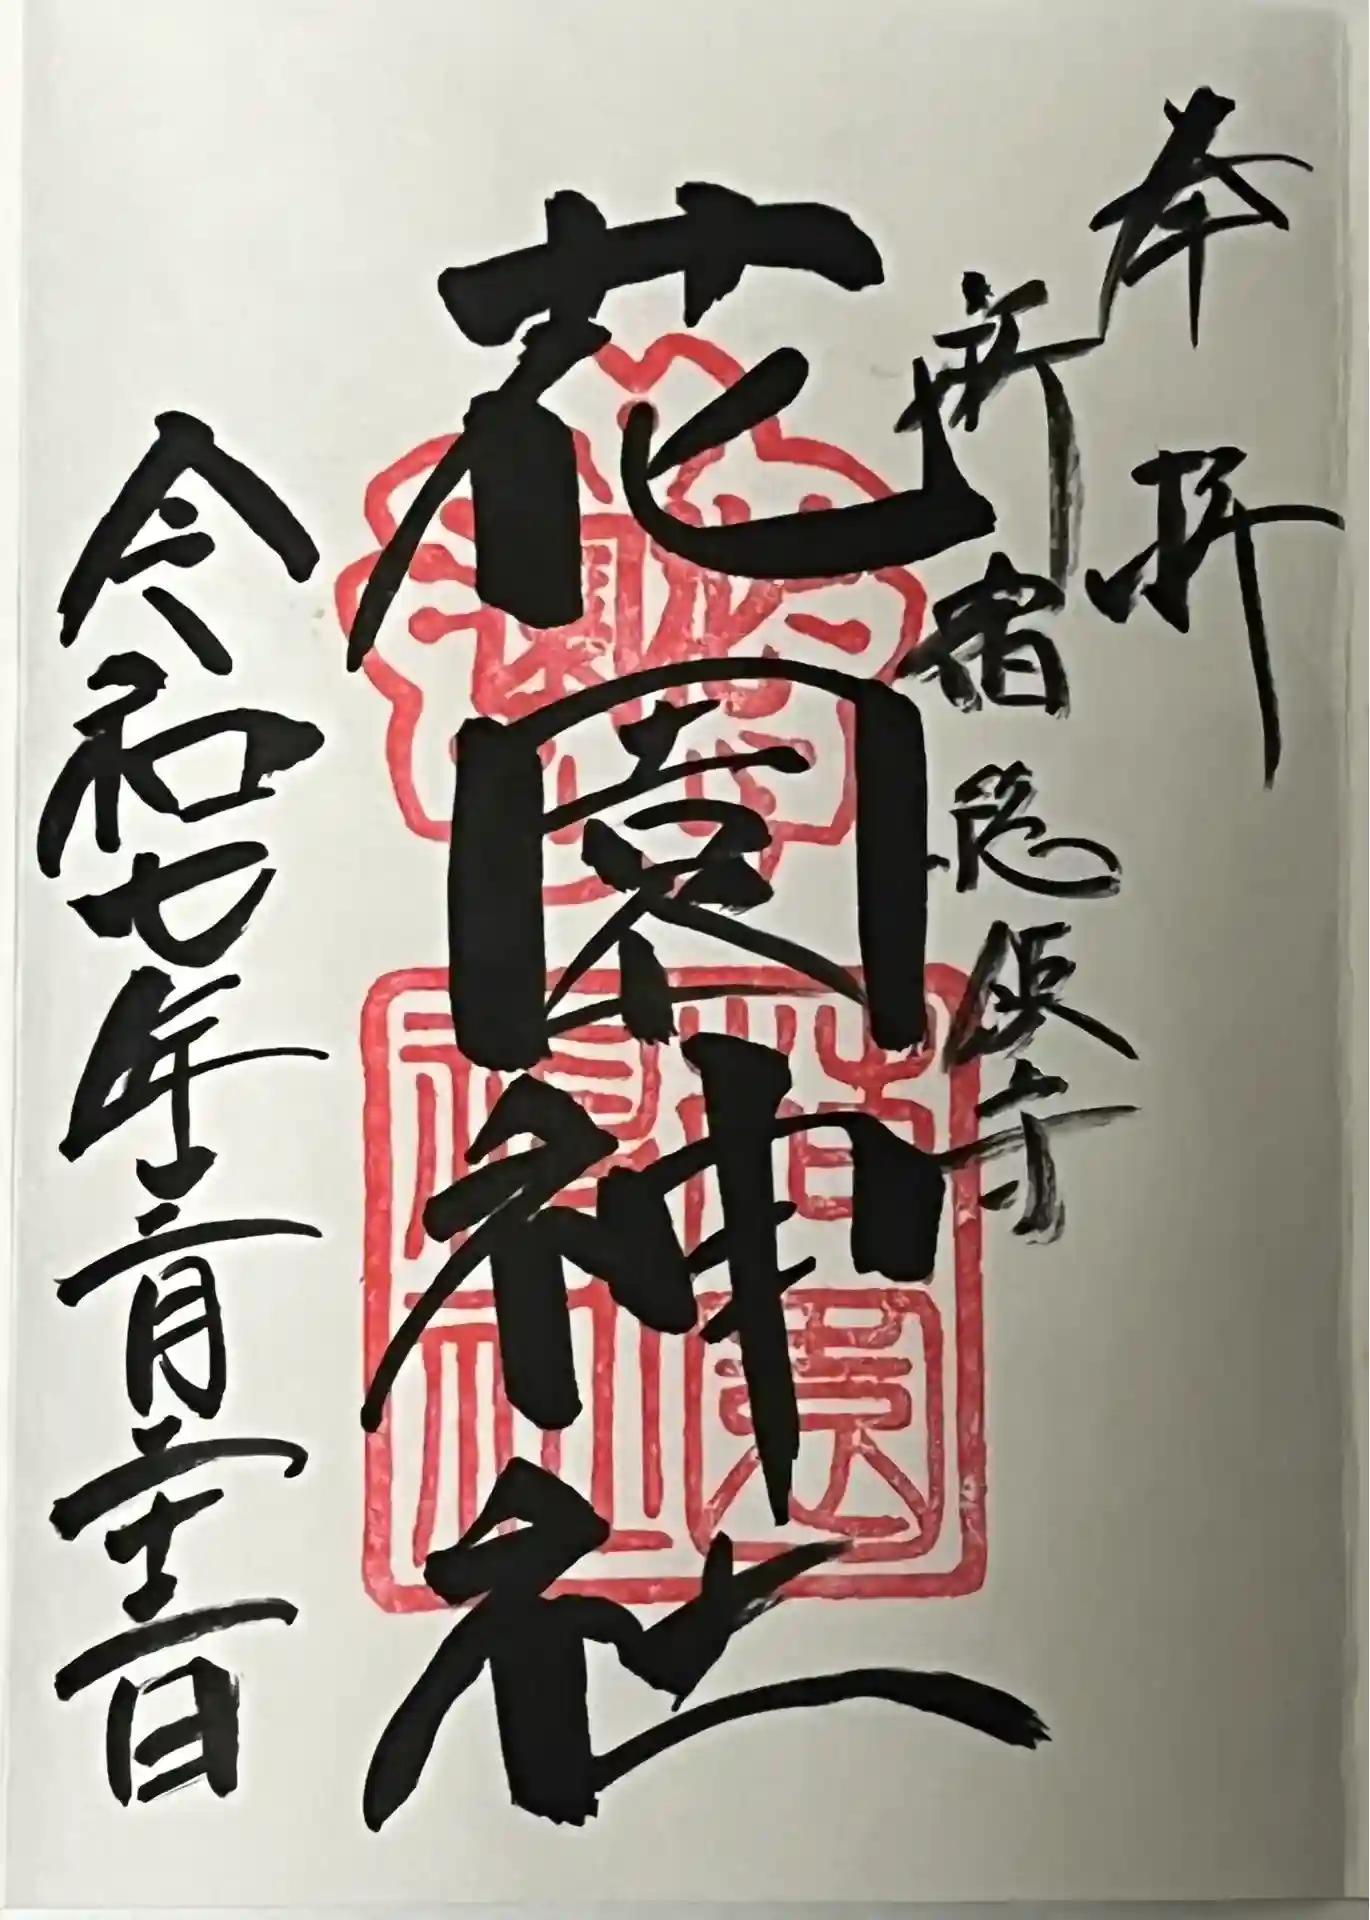 奉拝
新宿総鎮守
花園神社
令和七年三月二十二日
花園
神社